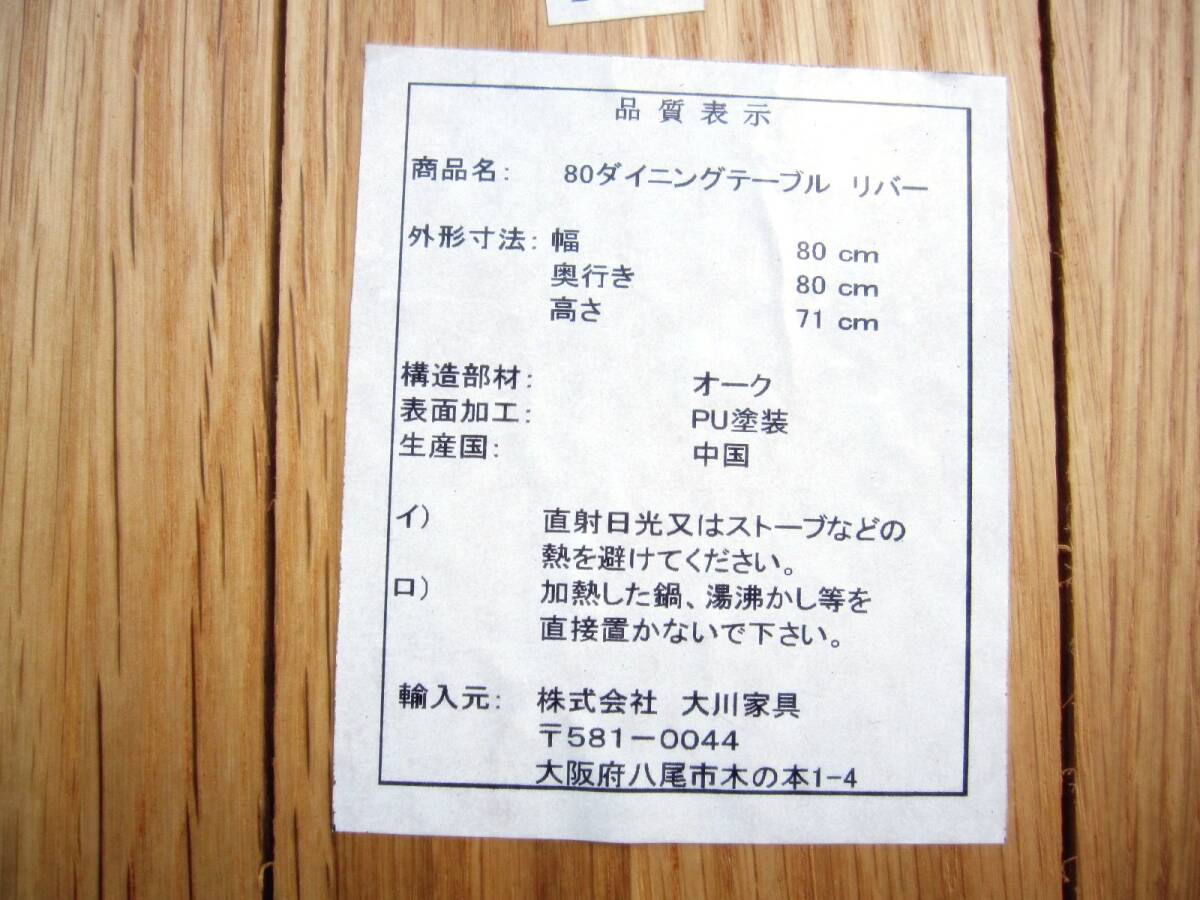 品質表示
商品名： 80ダイニングテーブル リバー
外形寸法： 幅 80 cm
奥行き 80 cm
高さ 71 cm
構造部材： オーク
表面加工： PU塗装
生産国： 中国
イ） 直射日光又はストーブなどの
熱を避けてください。
ロ） 加熱した鍋、湯沸かし等を
直接置かないで下さい。
輸入元： 株式会社 大川家具
〒581－0044
大阪府八尾市木の本1-4